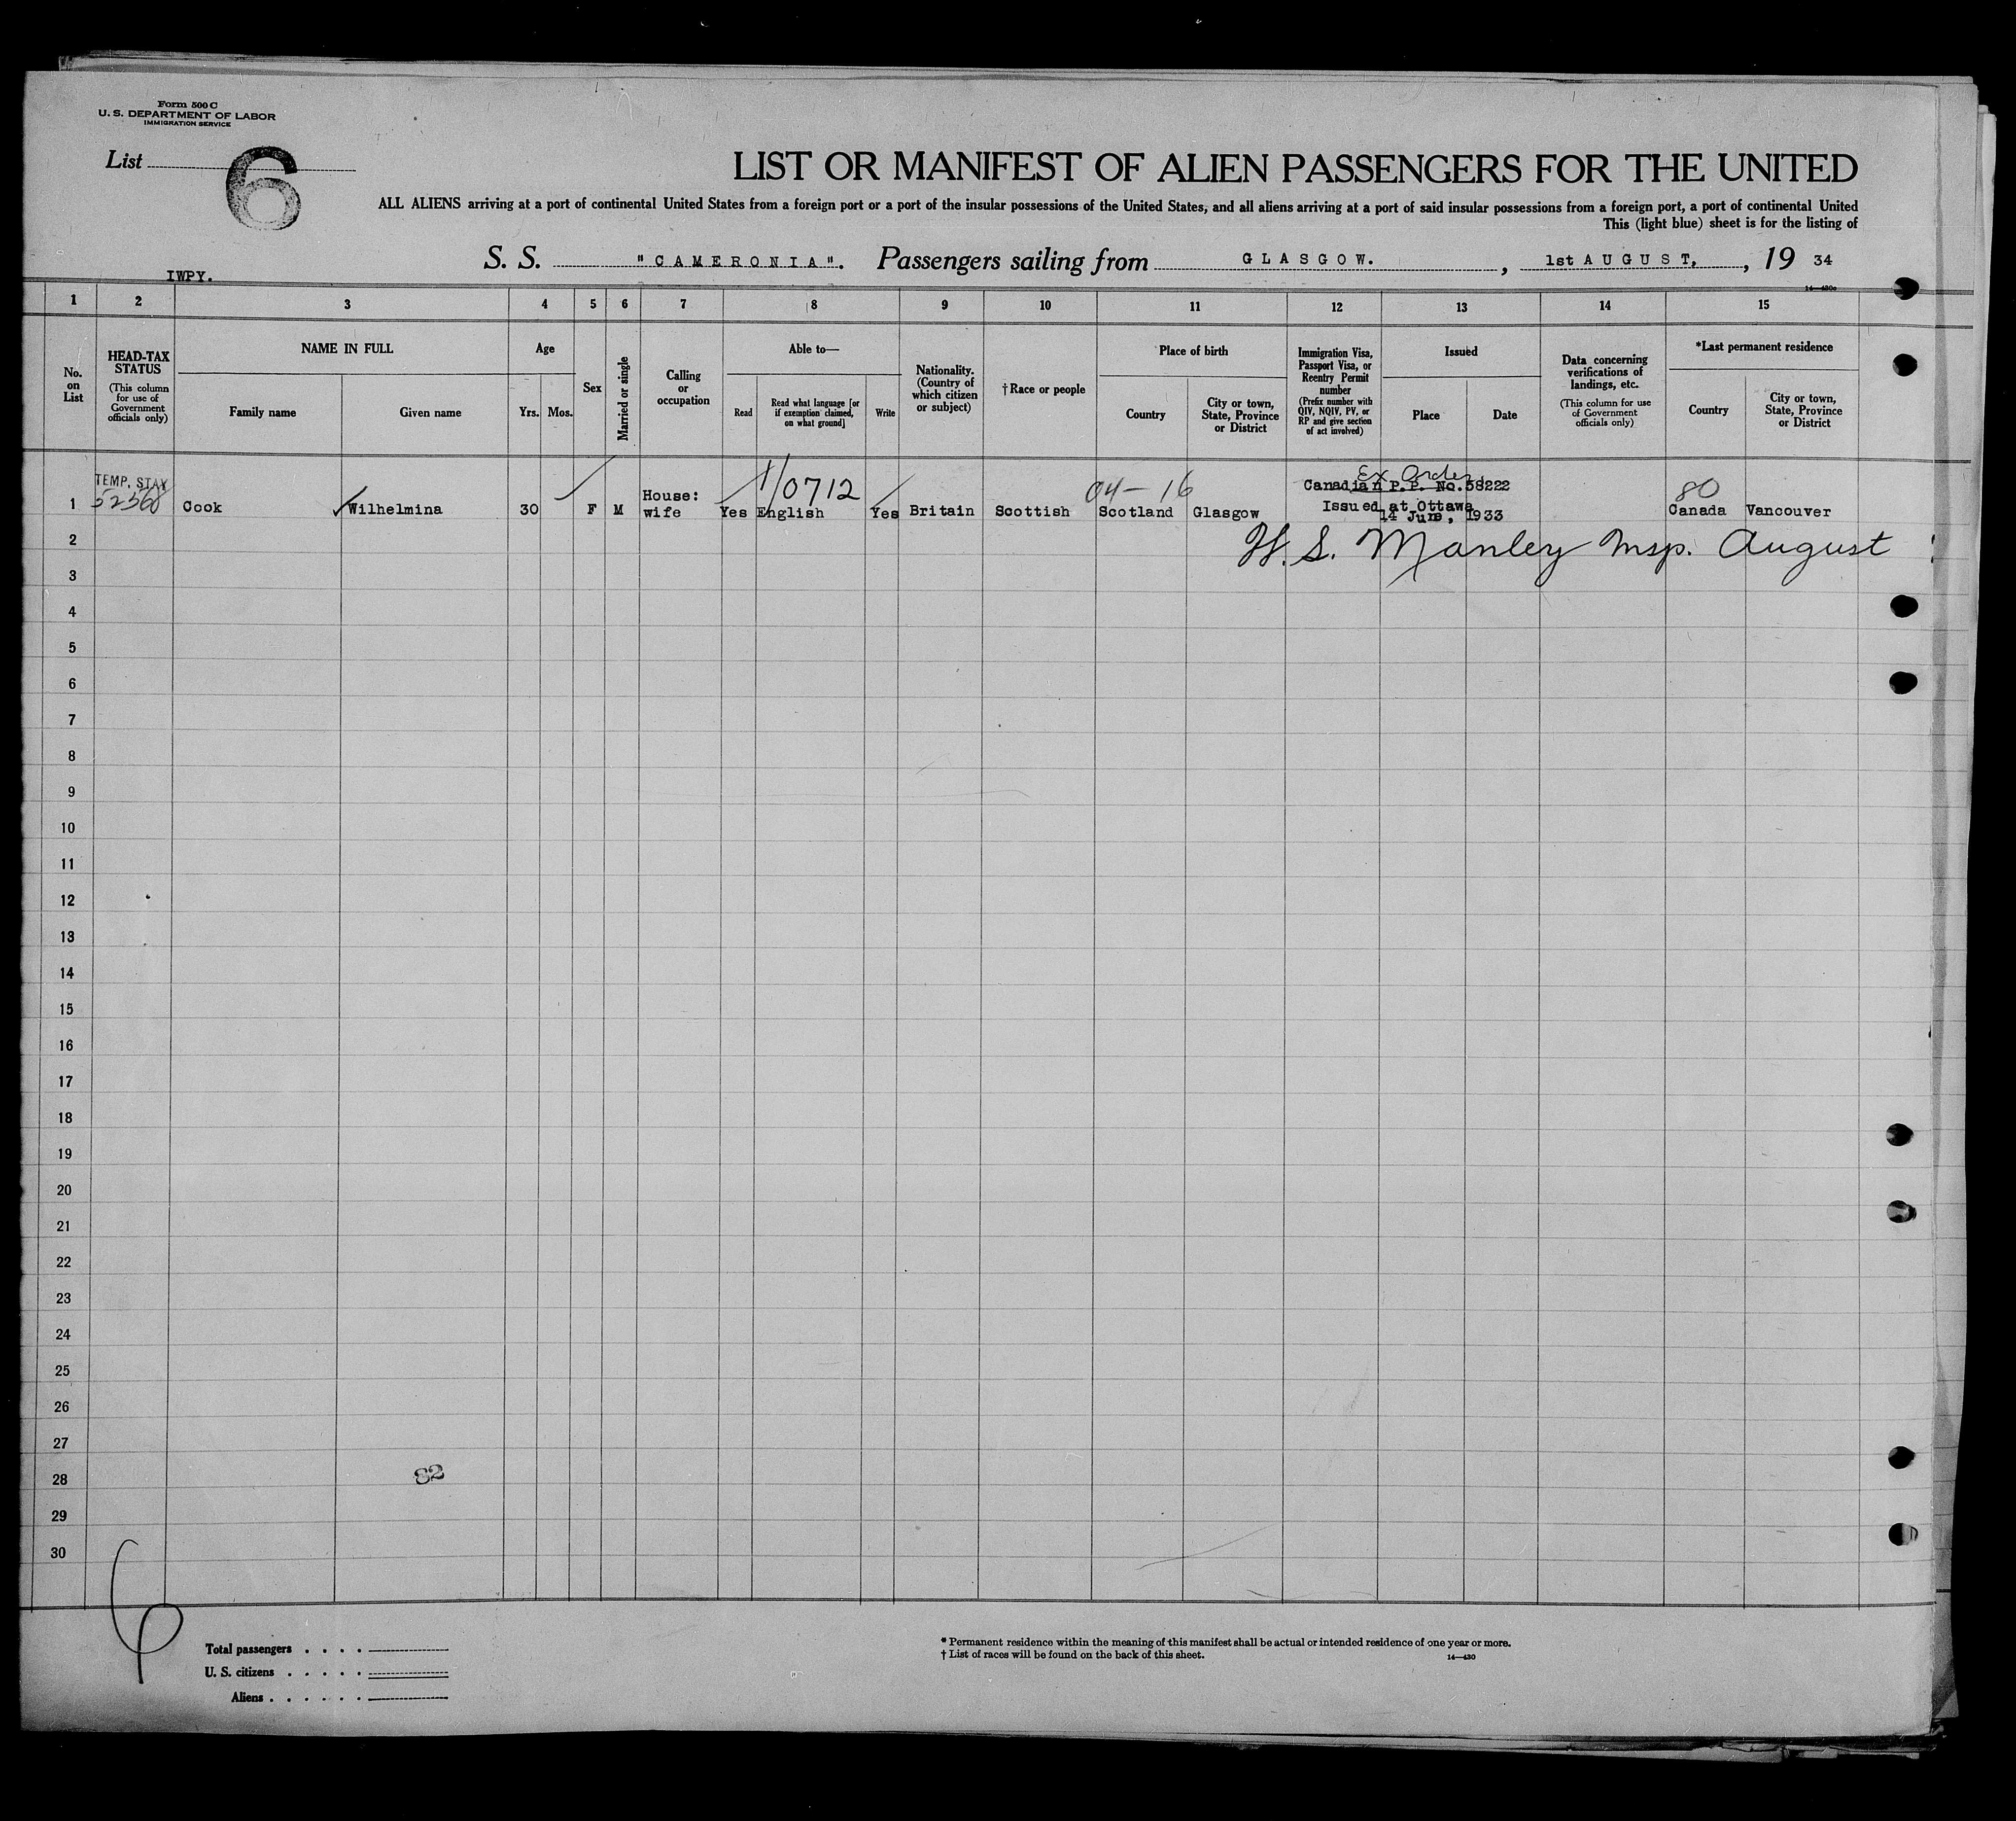 Form 500 C
U. S. DEPARTMENT OF LABOR
IMMIGRATION SERVICE
List 6
LIST OR MANIFEST OF ALIEN PASSENGERS FOR THE UNITED
ALL ALIENS arriving at a port of continental United States from a foreign port or a port of the insular possessions of the United States, and all aliens arriving at a port of said insular possessions from a foreign port, a port of continental United
This (light blue) sheet is for the listing of
S. S. "CAMERONIA". Passengers sailing from GLASGOW. , 1st AUGUST, , 19 34
IWPY.
14—430c
1 2 3 4 5 6 7 8 9 10 11 12 13 14 15
No. on List
HEAD-TAX STATUS
(This column for use of Government officials only)
NAME IN FULL
Family name
Given name
Age
Yrs.
Mos.
Sex
Married or single
Calling or occupation
Able to—
Read
Read what language [or if exemption claimed, on what ground]
Write
Nationality. (Country of which citizen or subject)
†Race or people
Place of birth
Country
City or town, State, Province or District
Immigration Visa, Passport Visa, or Reentry Permit number
(Prefix number with QIV, NQIV, PV, or RP and give section of act involved)
Issued
Place
Date
Data concerning verifications of landings, etc.
(This column for use of Government officials only)
*Last permanent residence
Country
City or town, State, Province or District
TEMP. STAY
52568
1/0712
04-16
Ex Order
80
1 Cook Wilhelmina 30 F M House: wife Yes English Yes Britain Scottish Scotland Glasgow Canadian P.P. No.58222 Issued at Ottawa 14 June, 1933 Canada Vancouver
H. S. Manley Insp. August
2
3
4
5
6
7
8
9
10
11
12
13
14
15
16
17
18
19
20
21
22
23
24
25
26
27
28
82
29
30
6
Total passengers . . . .
U. S. citizens . . . . .
Aliens . . . . . .
* Permanent residence within the meaning of this manifest shall be actual or intended residence of one year or more.
† List of races will be found on the back of this sheet.
14—430